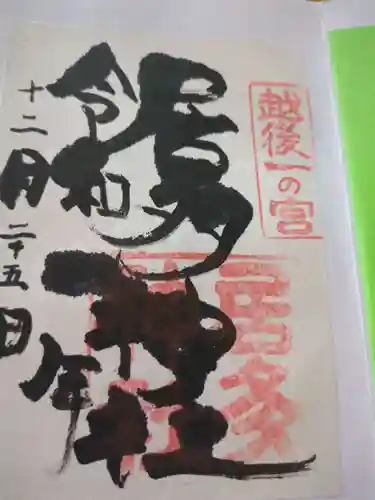 越後一の宮
居多神社
令和二年
十二月二十五日
居多神社